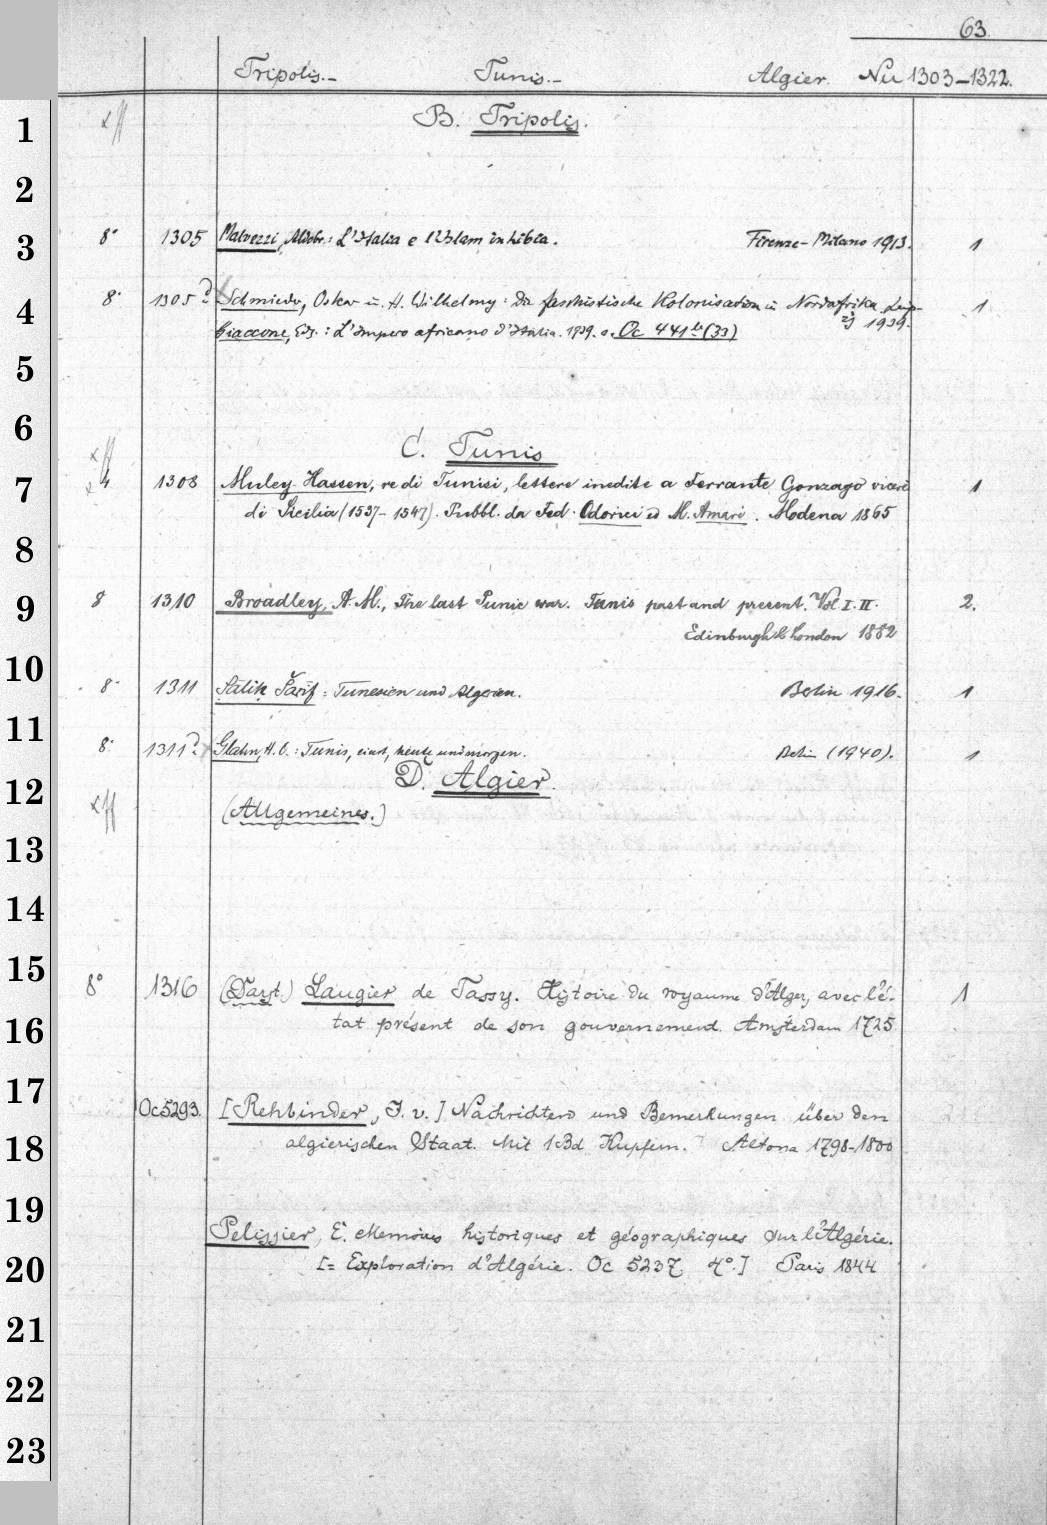 63.
Tripolis.- Tunis.- Algier. Nu 1303-1322.
1
B. Tripolis.
2
3
8° 1305 Malvezzi, Aldobr.: L'Italia e l'Islam in Libia. Firenze-Milano 1913. 1
4
8° 1305 a Schmieder, Oskar u. H. Wilhelmy: Die faschistische Kolonisation in Nordafrika. Leip-
zig 1939. 1
Giaccone, Edg.: L'Impero africano d'Italia. 1939. s. Oc 441 (33)
5
6
C. Tunis
7
4 1308 Muley Hassen, re di Tunisi, lettere inedite a Ferrante Gonzago viceré 1
di Sicilia (1537-1547). Pubbl. da Fed. Odorici ed M. Amari. Modena 1865
8
9
8 1310 Broadley, A. M., The last Punic war. Tunis past and present. Vol. I. II. 2.
Edinburgh & London 1882
10
8° 1311 Salih Šarif: Tunesien und Algerien. Berlin 1916. 1
11
8° 1311 a Glahn, H. C.: Tunis, einst, heute und morgen. Berlin (1940). 1
D. Algier.
12
(Allgemeines.)
13
14
15
8° 1316 (Darst.) Laugier de Tassy. Histoire du royaume d'Alger, avec l'é- 1
16
tat présent de son gouvernement. Amsterdam 1725.
17
Oc 5293. [Rehbinder, J. v.] Nachrichten und Bemerkungen über den
18
algierischen Staat. Mit 1 Bd Kupfern. Altona 1798-1800
19
Pelissier, E. Memoires historiques et géographiques sur l'Algérie.
20
[= Exploration d'Algérie. Oc 5237 4°.] Paris 1844
21
22
23